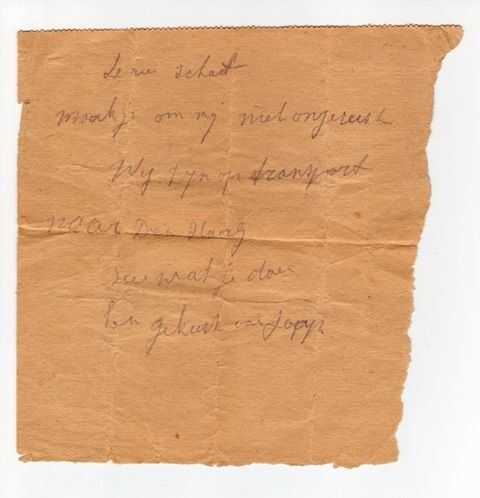 Lerie schat
maak je om mij niet ongerust
Wij zijn op transport
naar Den Haag
wat je doen
en gekust van Jopy